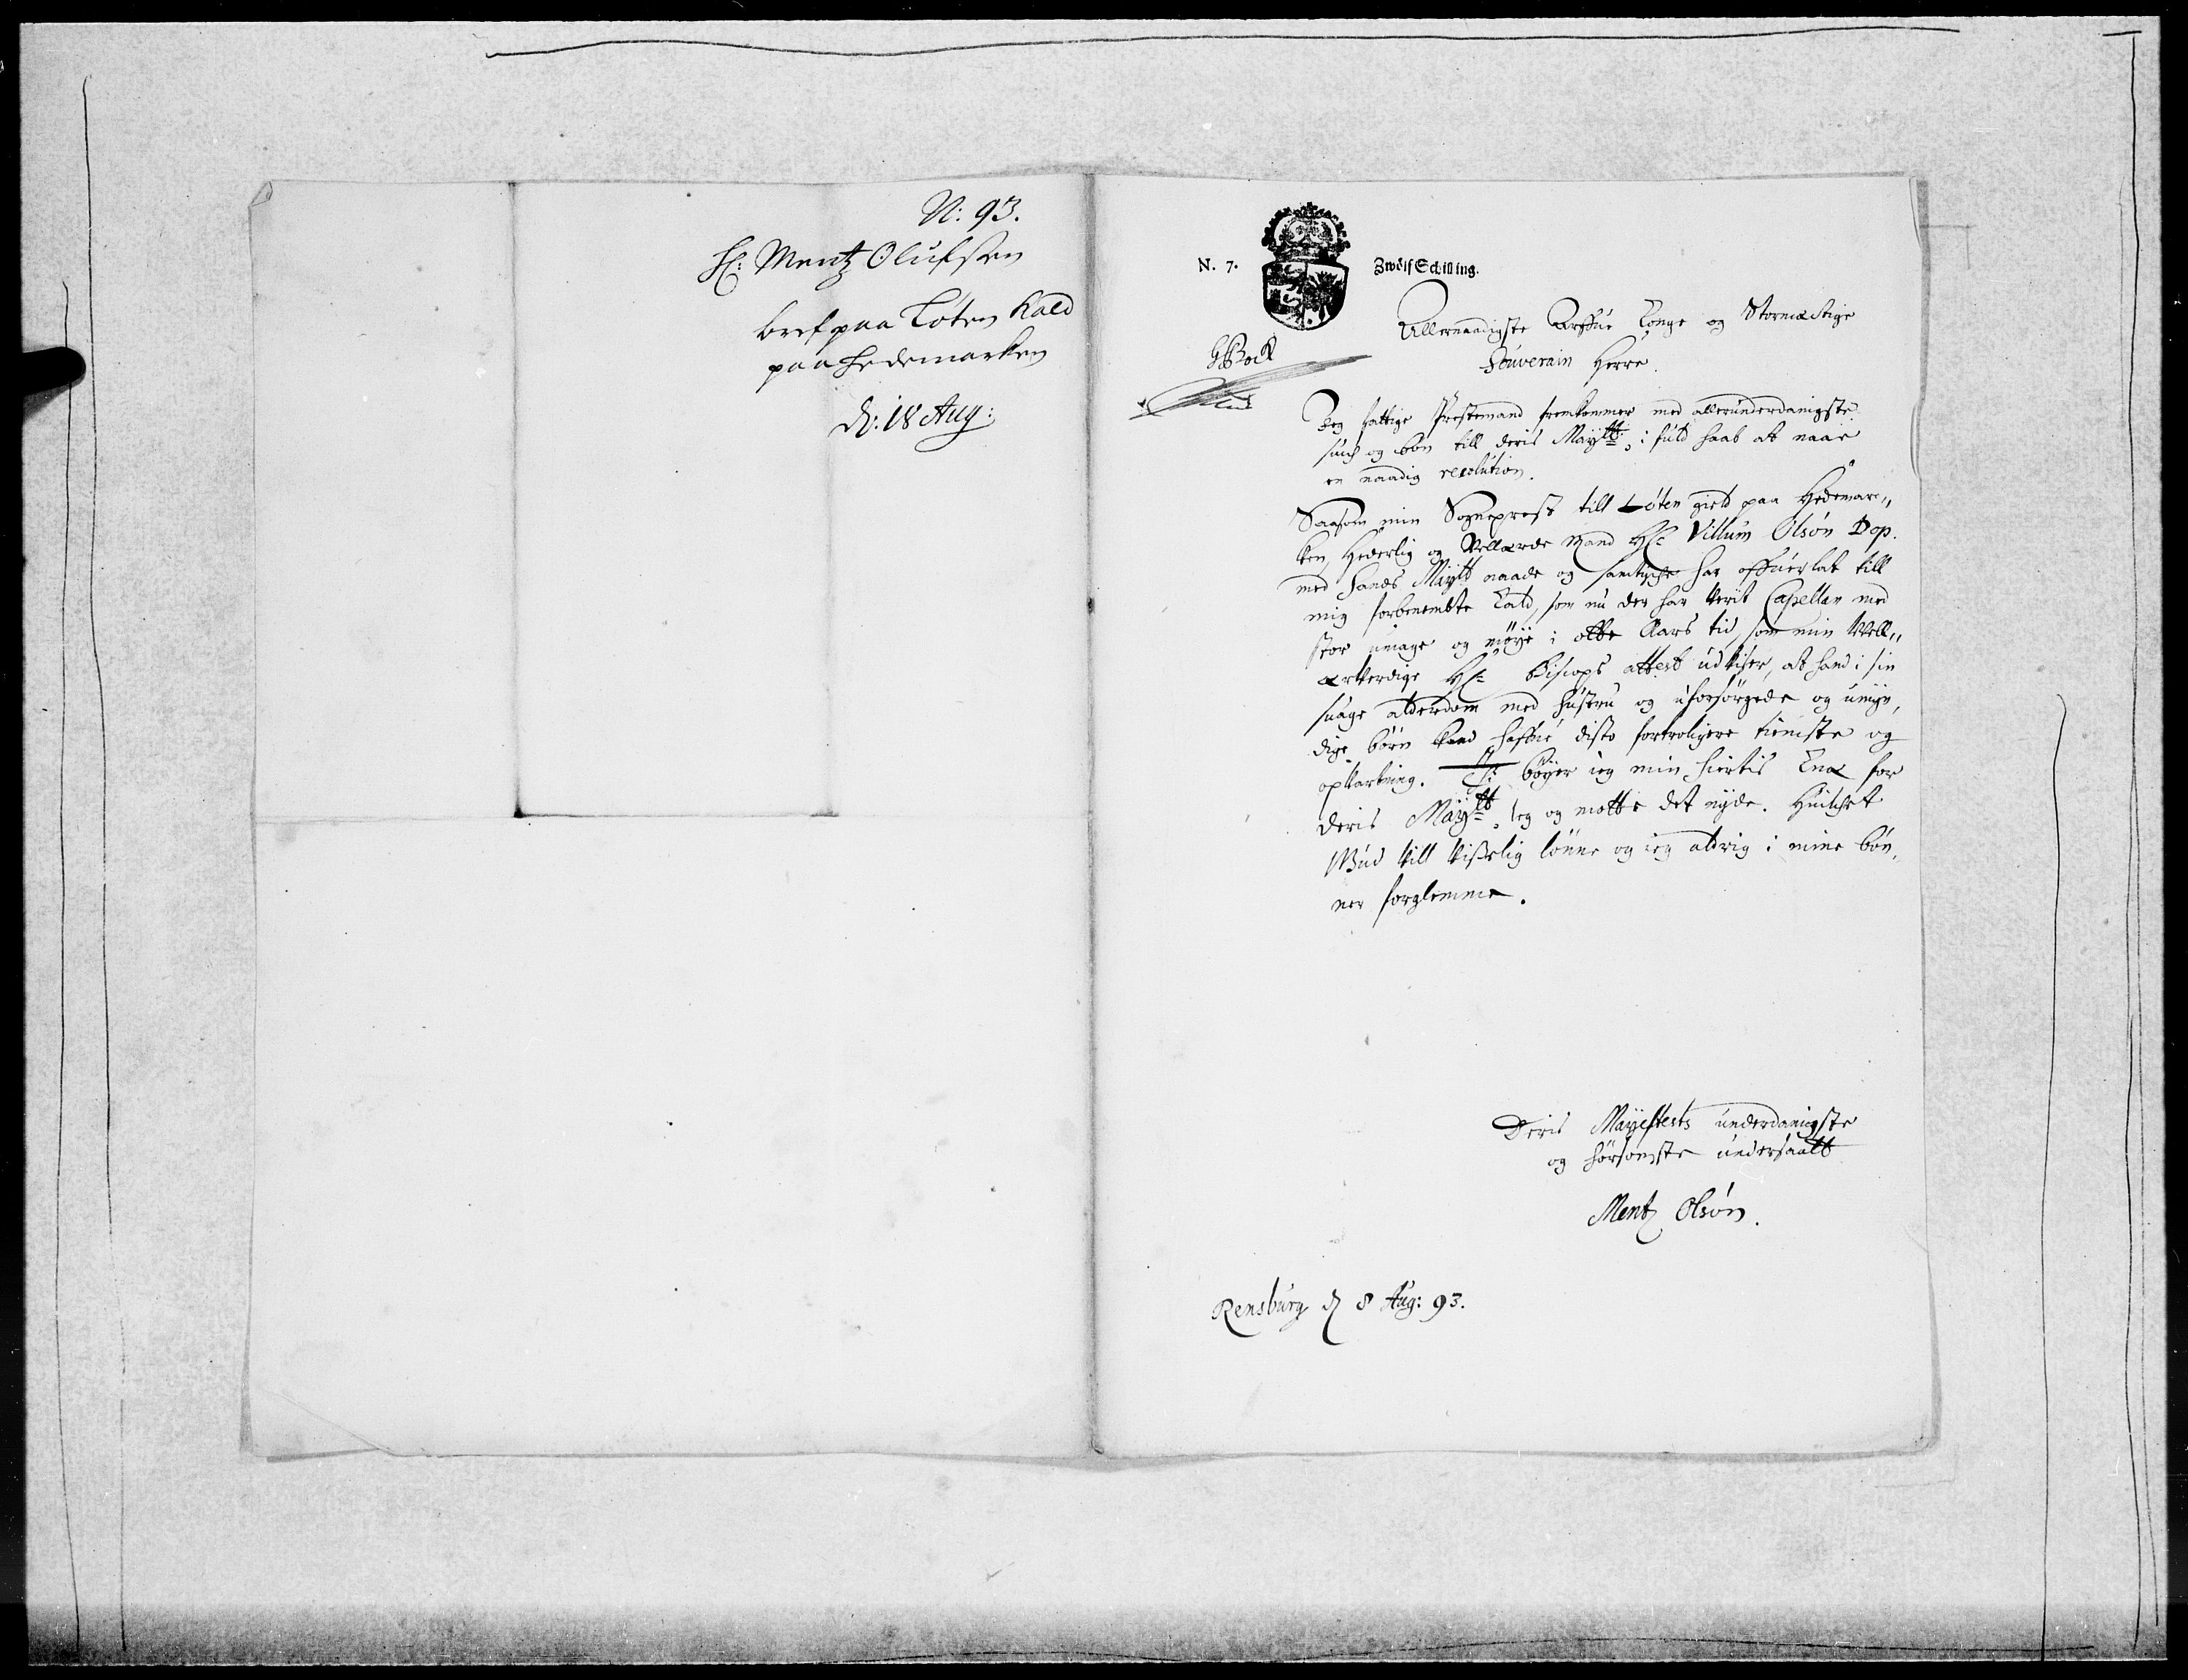 N: 93.
H: Mentz Olufsen
bref paa Løten Kald
paa Hedemarken
d: 18 Aug:
N. 7.
Zwölf Schilling.
GBock
Allernaadigste Arffue Konge og Stormectige
Souverain Herre.
Jeg fattige Prestemand fremkommer med allerunderdanigste
such og bøn till deris Maytt:, i fuld haab at naae
en naadig resolution.
Saasom min Sogneprest till Løten gield paa Hedemar„
ken, Hederlig og Vellærde Mand Hr: Villum Olsøn Dop.
med hands Maytt naade og samtyche har offuerlat till
mig forbenembte Kald, som nu der har verit Capellan med
stor umage og møye i otte Aars tid, som min Vell„
ærverdige Hr: Biscops attest udviser, at hand i sin
suage alderdom med hustru og uforsørgede og umyn,
dige børn kand haffue disto fortroligere tieniste og
opvartning. Thi bøyer ieg min hiertis Knæ for
Deris Maytt, Ieg og motte det nyde. Huilchet
Gud vill visselig lønne og ieg aldrig i mine bøn,
ner forglemme.
Deris Mayestets underdanigste
og hørsomste undersaatt
Mentz Olsøn.
Rensburg d 8 Aug: 93.